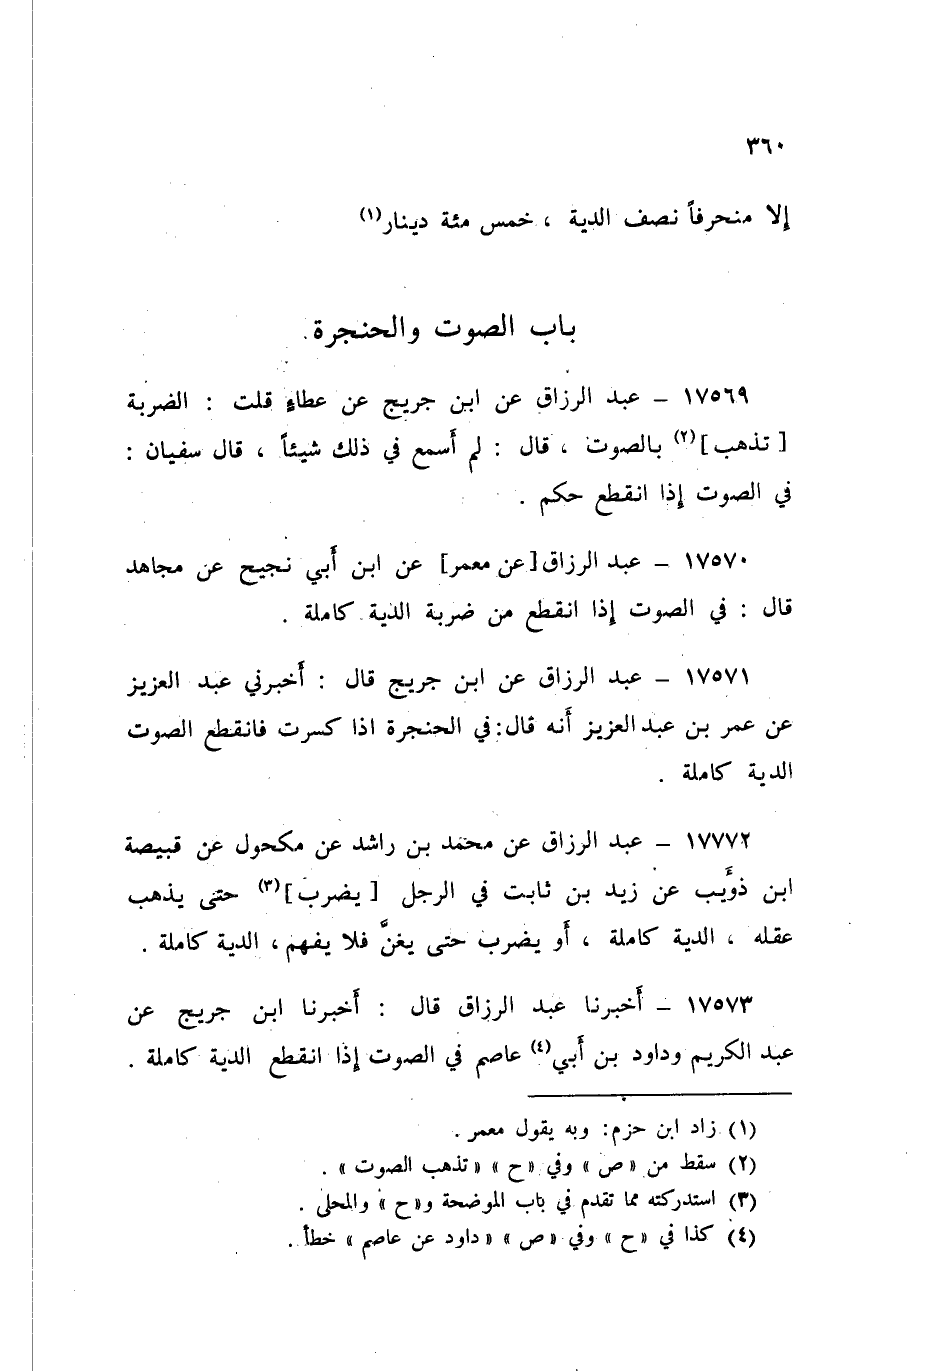 ٣٦٠
إلا منحرفاً نصف الدية ، خمس مئة دينار(١)
باب الصوت والحنجرة .
١٧٥٦٩ – عبد الرزاق عن ابن جريج عن عطاءٍ قلت : الضربة
[ تذهب ](٢) بالصوت ، قال : لم أَسمع في ذلك شيئاً ، قال سفيان :
في الصوت إذا انقطع حكم .
١٧٥٧٠ – عبد الرزاق [عن معمر] عن ابن أَبي نجيح عن مجاهد
قال : في الصوت إذا انقطع من ضربة الدية كاملة .
١٧٥٧١ – عبد الرزاق عن ابن جريج قال : أَخبرني عبد العزيز
عن عمر بن عبد العزيز أَنه قال: في الحنجرة اذا كسرت فانقطع الصوت
الدية كاملة .
١٧٧٧٢ – عبد الرزاق عن محمد بن راشد عن مكحول عن قبيصة
ابن ذؤَيب عن زيد بن ثابت في الرجل [ يضرب ](٣) حتى يذهب
عقله ، الدية كاملة ، أَو يضرب حتى يغنَّ فلا يفهم ، الدية كاملة .
١٧٥٧٣ – أَخبرنا عبد الرزاق قال : أَخبرنا ابن جريج عن
عبد الكريم وداود بن أَبي(٤) عاصم في الصوت إذا انقطع الدية كاملة .
(١) زاد ابن حزم: وبه يقول معمر .
(٢) سقط من « ص » وفي « ح » « تذهب الصوت » .
(٣) استدركته مما تقدم في باب الموضحة و« ح » والمحلى .
(٤) كذا في « ح » وفي « ص » « داود عن عاصم » خطأ .